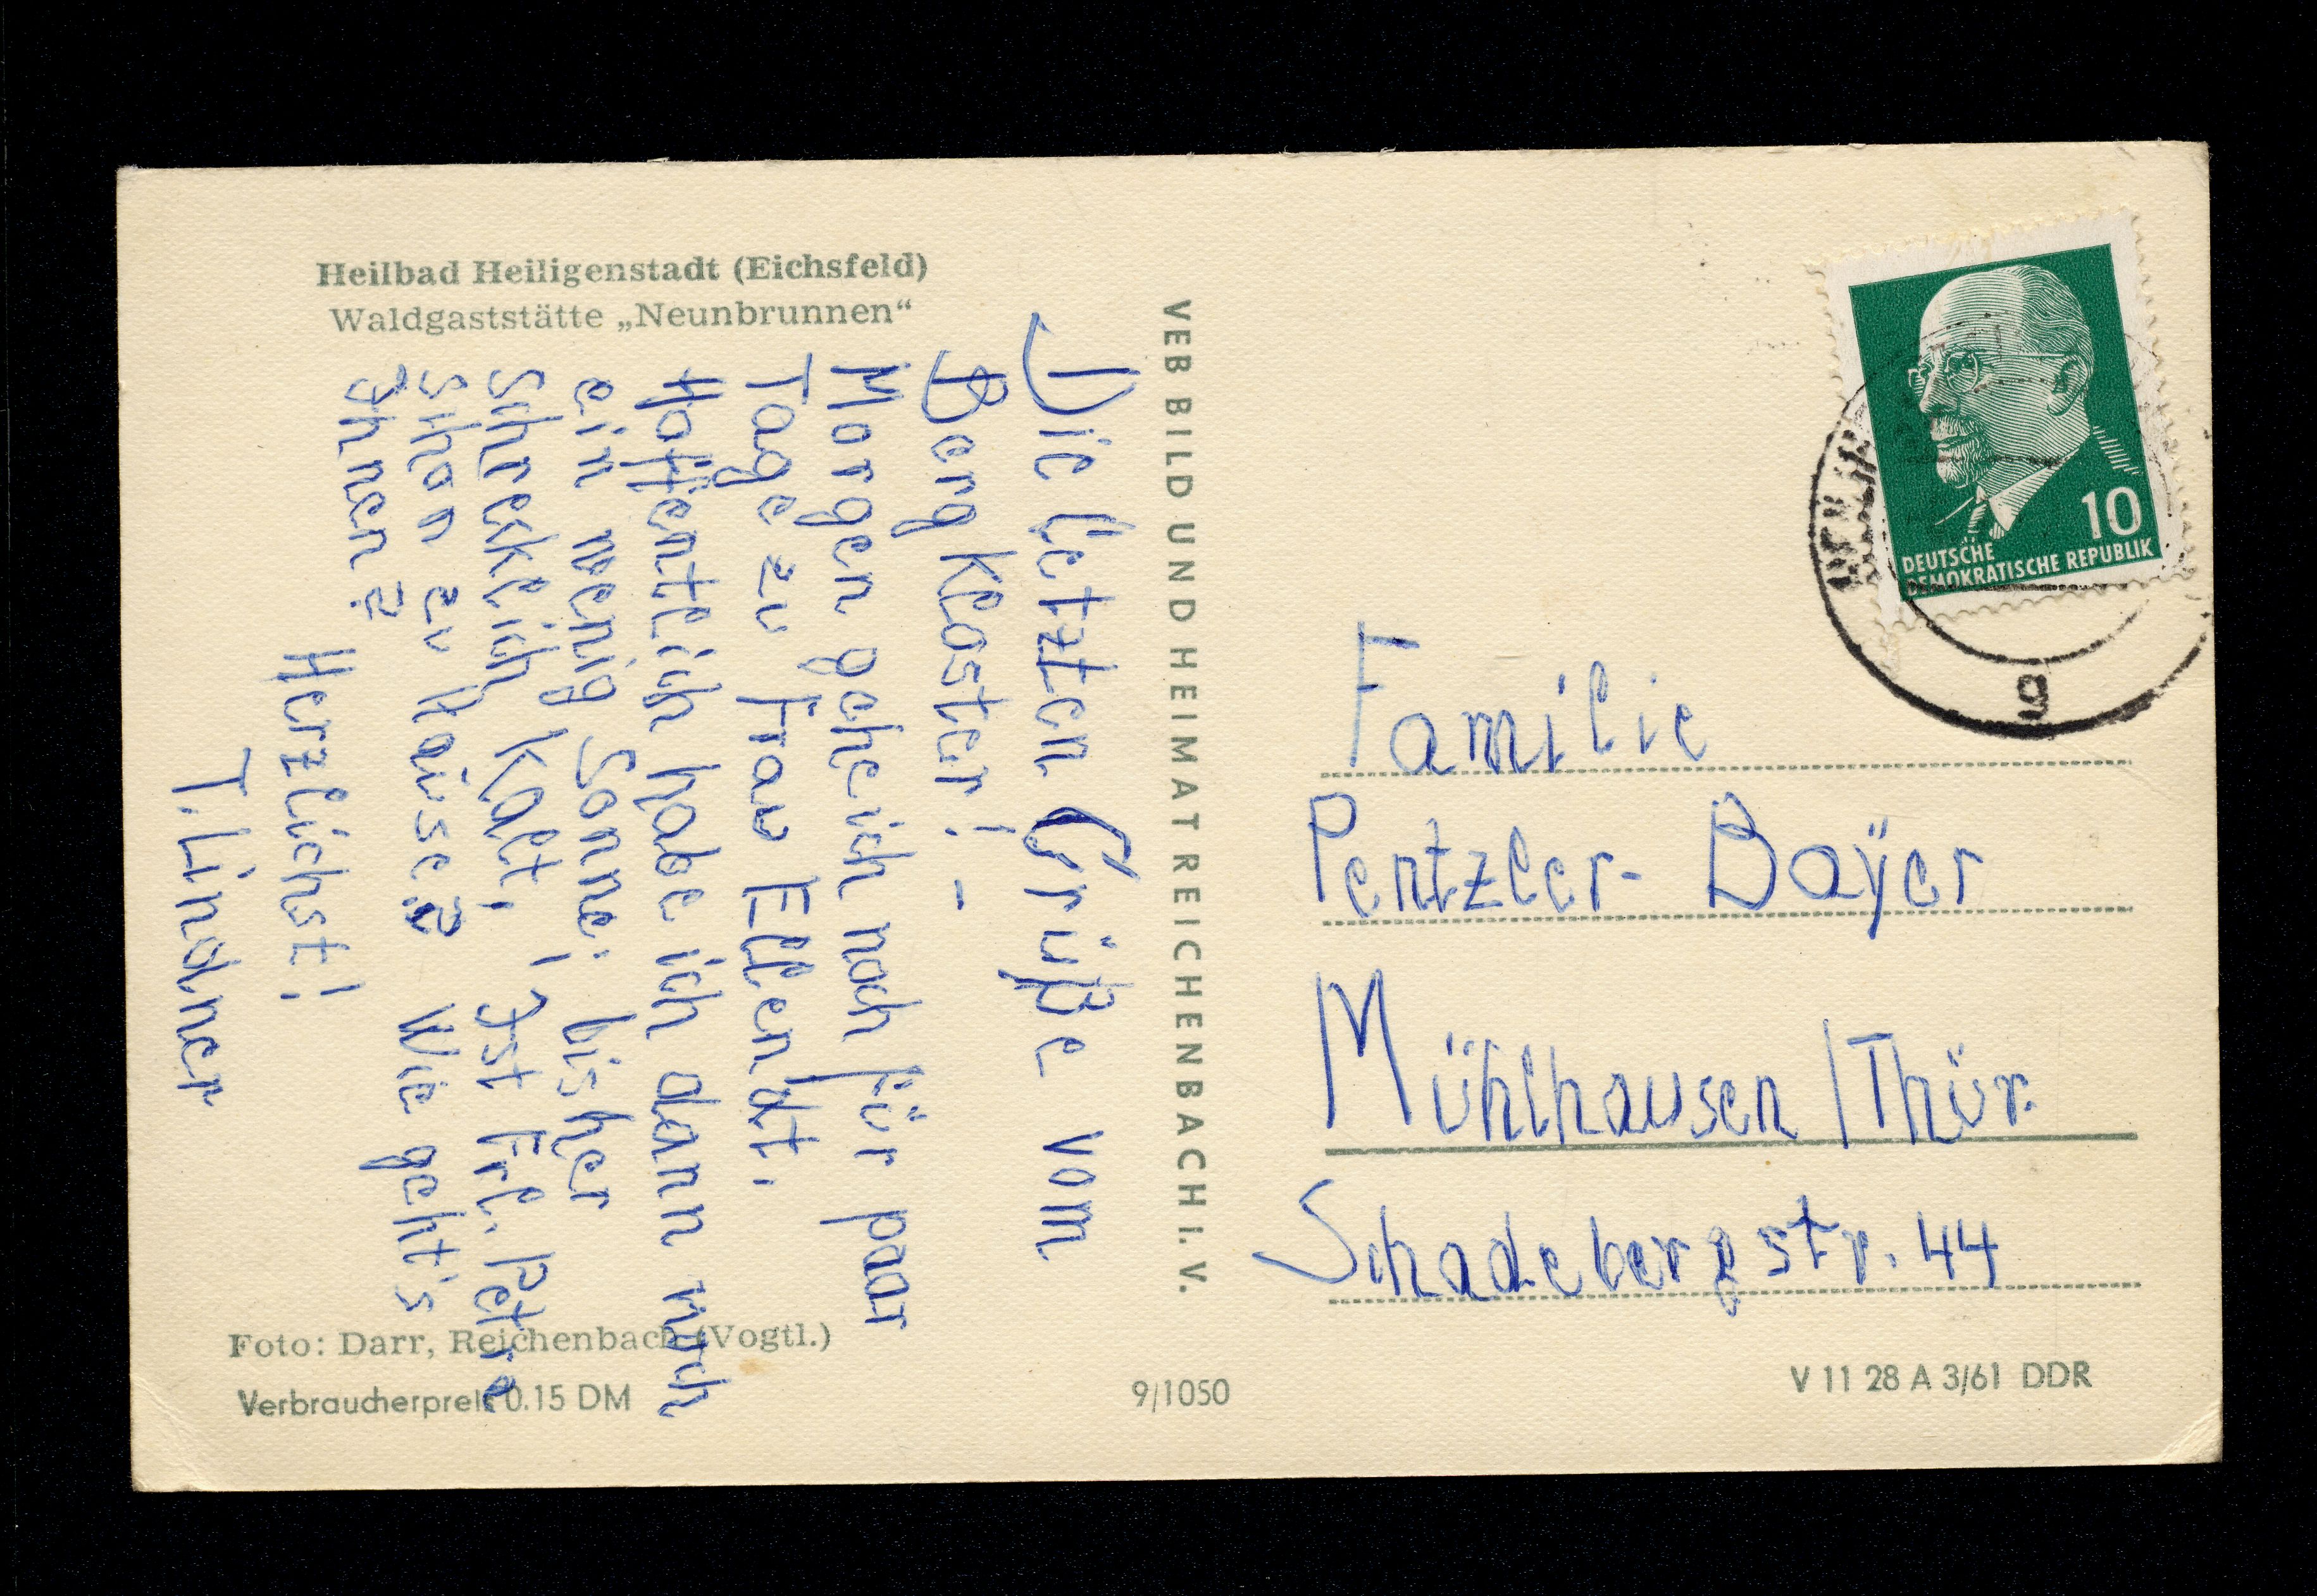 Heilbad Heiligenstadt (Eichsfeld)
Waldgaststätte „Neunbrunnen“
Die letzten Grüße vom
Bergkloster! –
Morgen gehe ich noch für paar
Tage zu Frau Ellendt.
Hoffentlich habe ich dann noch
ein wenig Sonne; bisher
schrecklich kalt! Ist Frl. Petra
schon zu Hause? Wie geht's
Ihnen?
Herzlichst!
T. Lindner
Foto: Darr, Reichenbach (Vogtl.)
Verbraucherpreis 0.15 DM
VEB BILD UND HEIMAT REICHENBACH I. V.
9/1050
10
DEUTSCHE
DEMOKRATISCHE REPUBLIK
g
Familie
Pentzler-Bayer
Mühlhausen / Thür.
Schadebergstr. 44
V 11 28 A 3/61 DDR